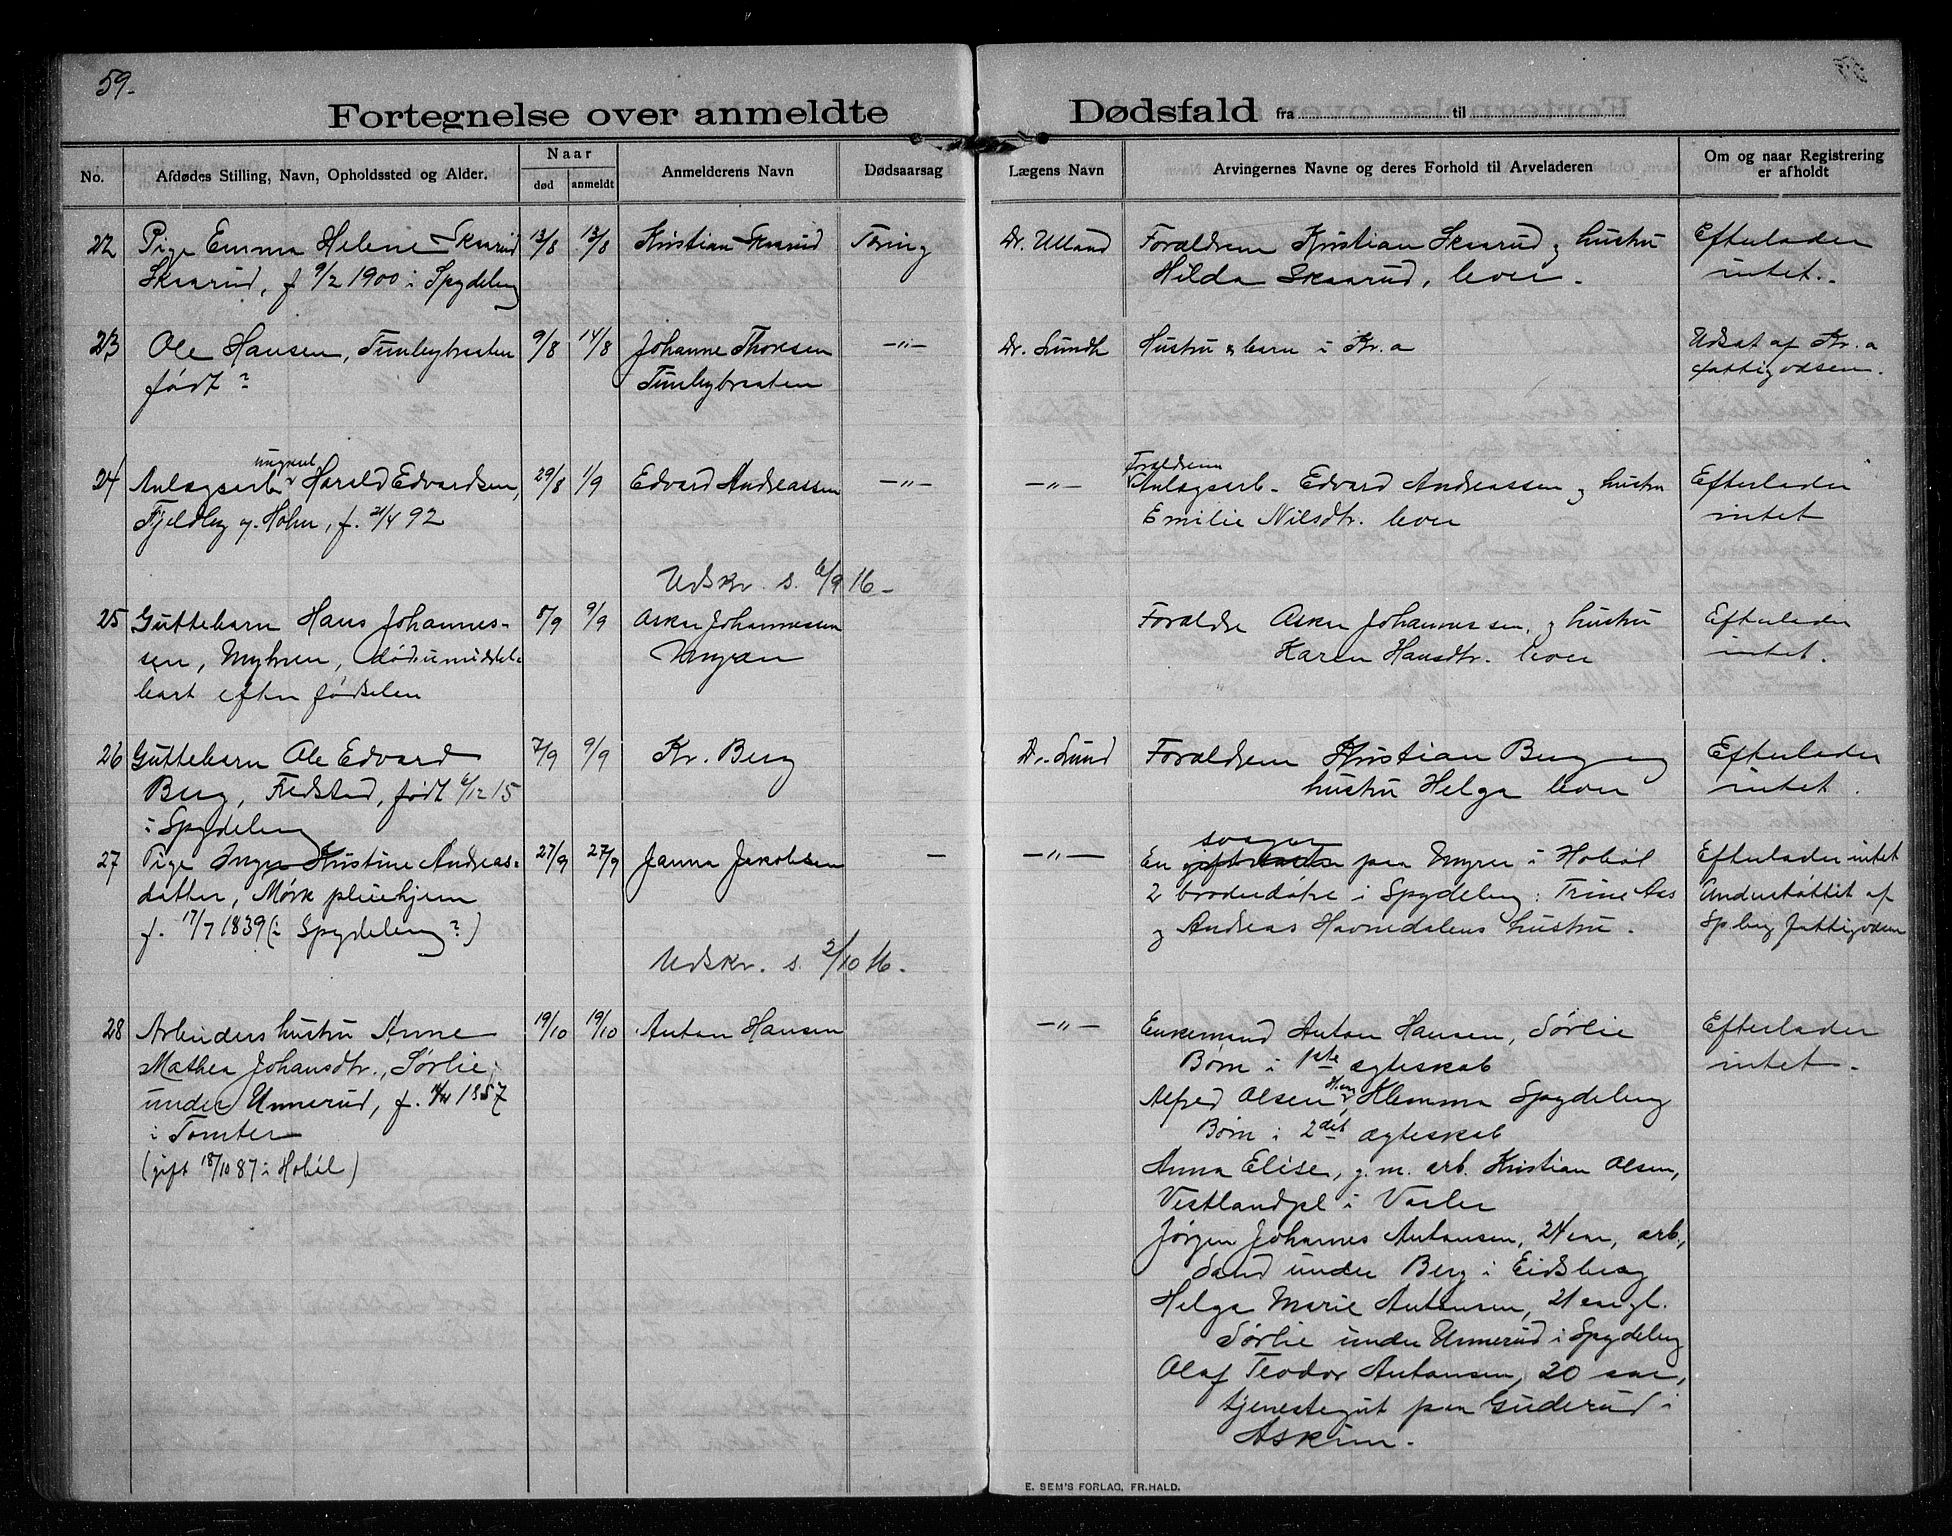 59.
Fortegnelse over anmeldte Dødsfald fra til
No.
Afdødes Stilling, Navn, Opholdssted og Alder.
Naar
død
anmeldt
Anmelderens Navn
Dødsaarsag
Lægens Navn
Arvingernes Navne og deres Forhold til Arveladeren
Om og naar Registrering
er afholdt
22 Pige Emma Helene Skaarud 13/8 13/8 Kristian Skaarud Tæring Dr. Ulland Forældrene Kristian Skaarud og hustru Efterlader
Skaarud, f 9/2 1900 i Spydeberg Hilda Skaarud, lever. intet.
23 Ole Hansen, Tunbybraaten 9/8 14/8 Johanne Thoresen —"— Dr. Lundh Hustru & barn i Kr.a Udsat af Kr.a
født? Tunbybraaten fattigvæsen.
24 Anlægsarb. ungkarl Harald Edvardsen, 29/8 1/9 Edvard Andreassen —"— —"— Forældrene Anlægsarb. Edvard Andreassen og hustru Efterlader
Fjeldby p. Holm, f. 21/4 92 Emilie Nilsdtr. lever intet
Udskr. s. 6/9 16 —
25 Guttebarn Hans Johannes- 8/9 9/9 Asker Johannessen Forældre Asker Johannessen, og hustru Efterlader
sen, Myhren, død umiddel- Karen Hansdtr. lever intet.
bart efter fødselen
26 Guttebarn Ole Edvard 7/9 9/9 Kr. Berg Dr. Lund Forældrene Kristian Berg og Efterlader
Berg, Fredstad, født 6/12 15 hustru Helga lever intet.
i Spydeberg
27 Pige Inger Kristine Andreas- 27/9 27/9 Janna Jakobsen — —"— En svager paa Myrer i Hobøl Efterlader intet
datter, Mørk pleiehjem 2 broderdøtre i Spydeberg: Trine Aas Understøttet af
f. 17/7 1839 (i Spydeberg?) og Andreas Havnedalens hustru. Spberg fattigvæsen
Udskr. s. 2/10 16.
28 Arbeiders hustru Anne 19/10 19/10 Anton Hansen —"— Enkemand Anton Hansen, Sørlie Efterlader
Mathea Johansdtr., Sørlie, Børn i 1ste ægteskab intet.
under Unnerud, f. 1857 Alfred Olsen, Klemma Spydeberg
i Tomter Børn i 2det ægteskab
(gift 18/10 87 i Hobøl) Anna Elise, g. m. arb. Kristian Olsen,
Vestlandpl i Vaaler
Jørgen Johannes Antonsen, 24 aar, arb.,
Sand under Berg i Eidsberg
Helga Marie Antonsen, 21 aar
Sørlie under Unnerud i Spydeberg
Olaf Teodor Antonsen, 20 aar,
tjenestegut paa Guderud i
Askim.
E. SEM'S FORLAG, FR.HALD.